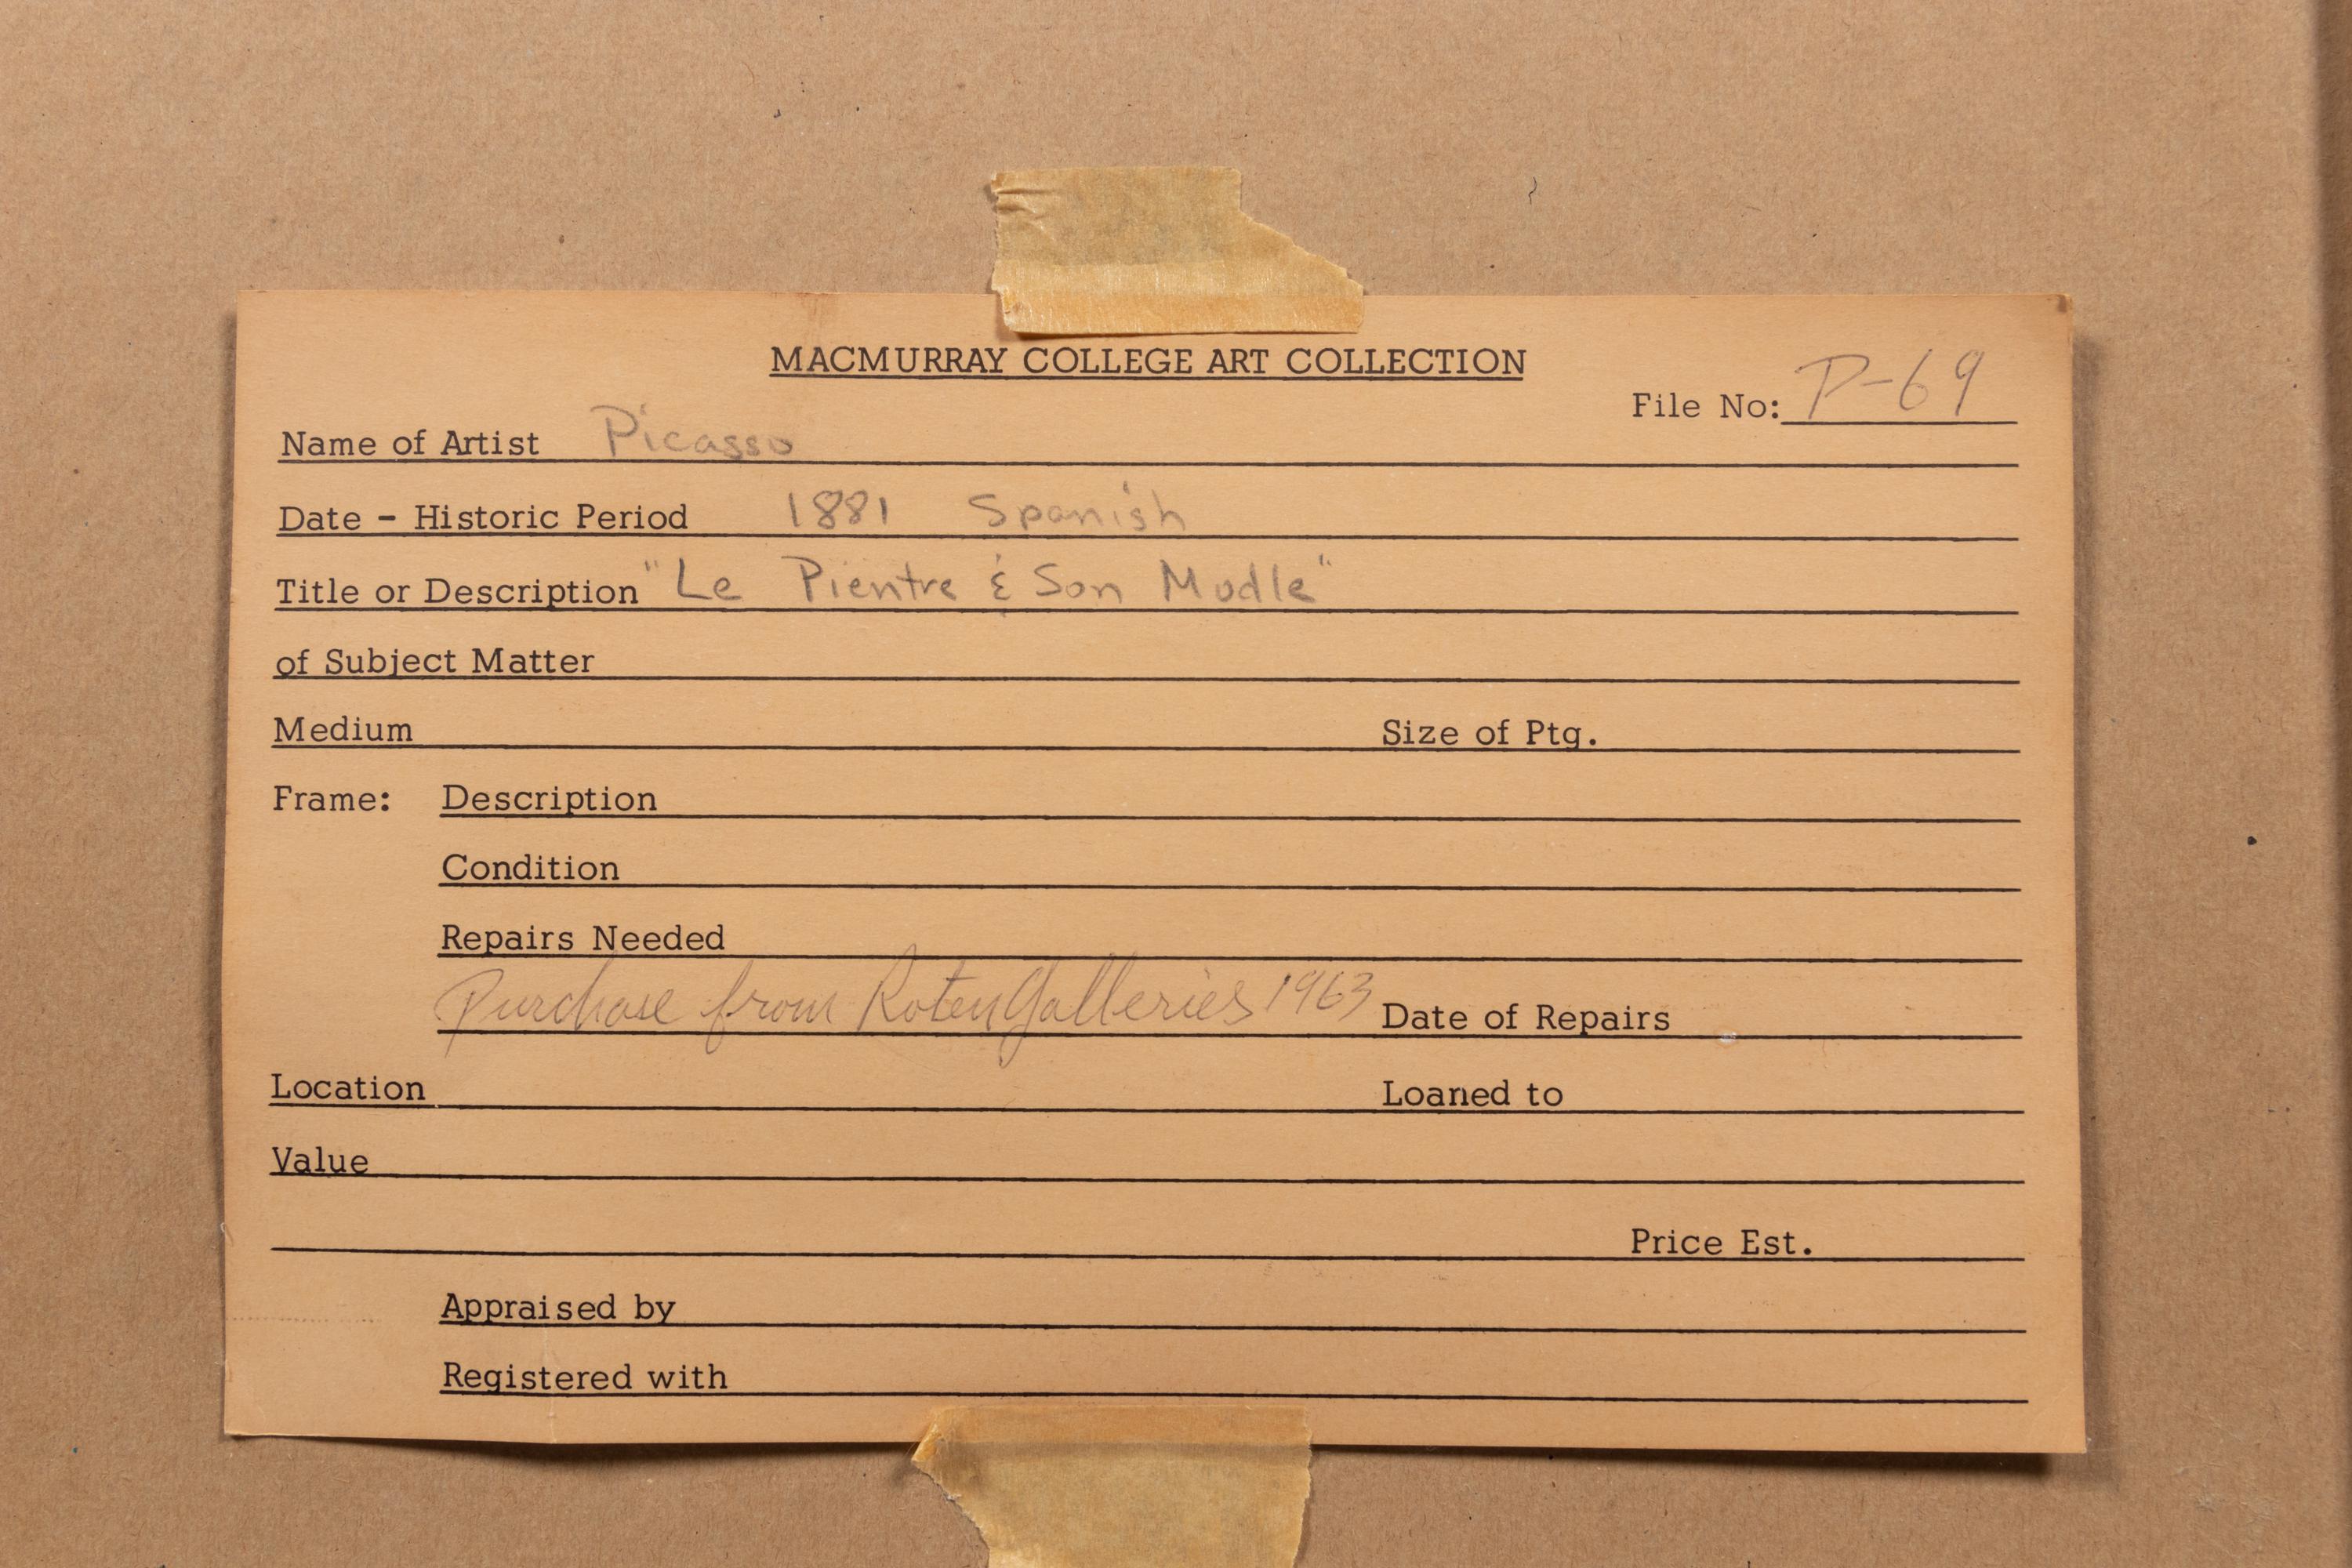 MACMURRAY COLLEGE ART COLLECTION
File No: P-69
Name of Artist Picasso
Date - Historic Period 1881 Spanish
Title or Description "Le Pientre & Son Modle"
of Subject Matter
Medium Size of Ptg.
Frame: Description
Condition
Repairs Needed
Purchase from Roten Galleries 1963 Date of Repairs
Location Loaned to
Value
Price Est.
Appraised by
Registered with